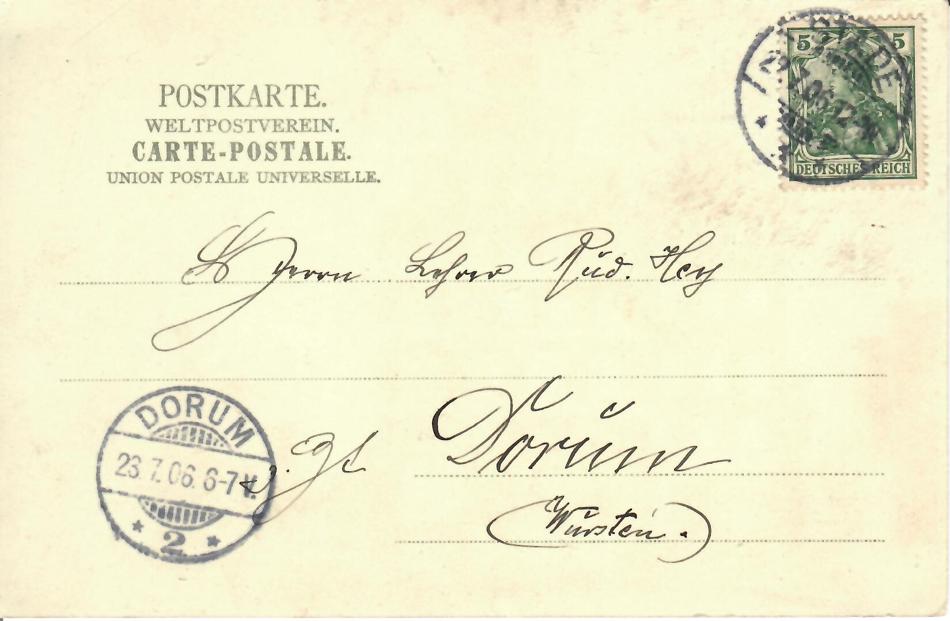 POSTKARTE.
WELTPOSTVEREIN.
CARTE-POSTALE.
UNION POSTALE UNIVERSELLE.
5 5
STADE
7.06.12-
DEUTSCHES REICH
Herrn Lehrer Rud. Hey
DORUM
23.7.06.6-7V.
2
Dorum
(Wursten.)